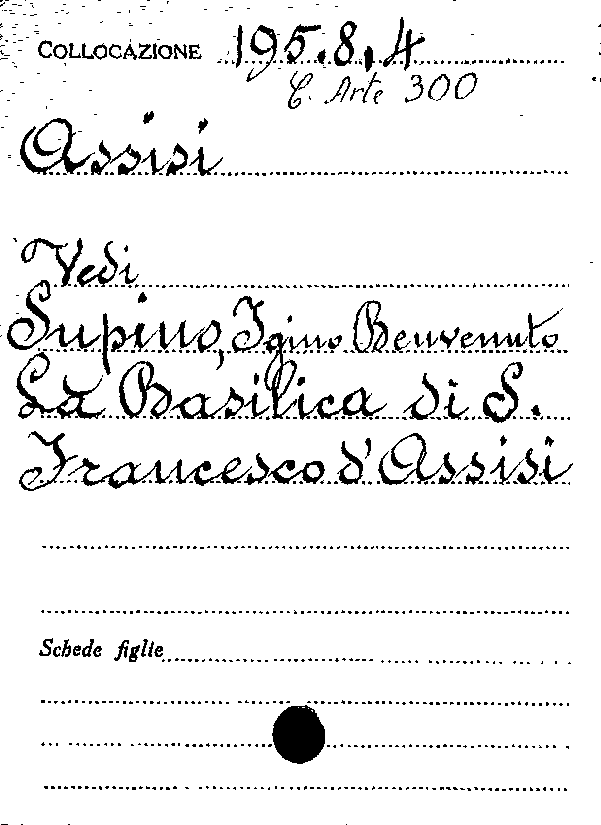 COLLOCAZIONE 195.8.4
C. Arte 300
Assisi
Vedi
Supino, Igino Benvenuto
La Basilica di S.
Francesco d'Assisi
Schede figlie